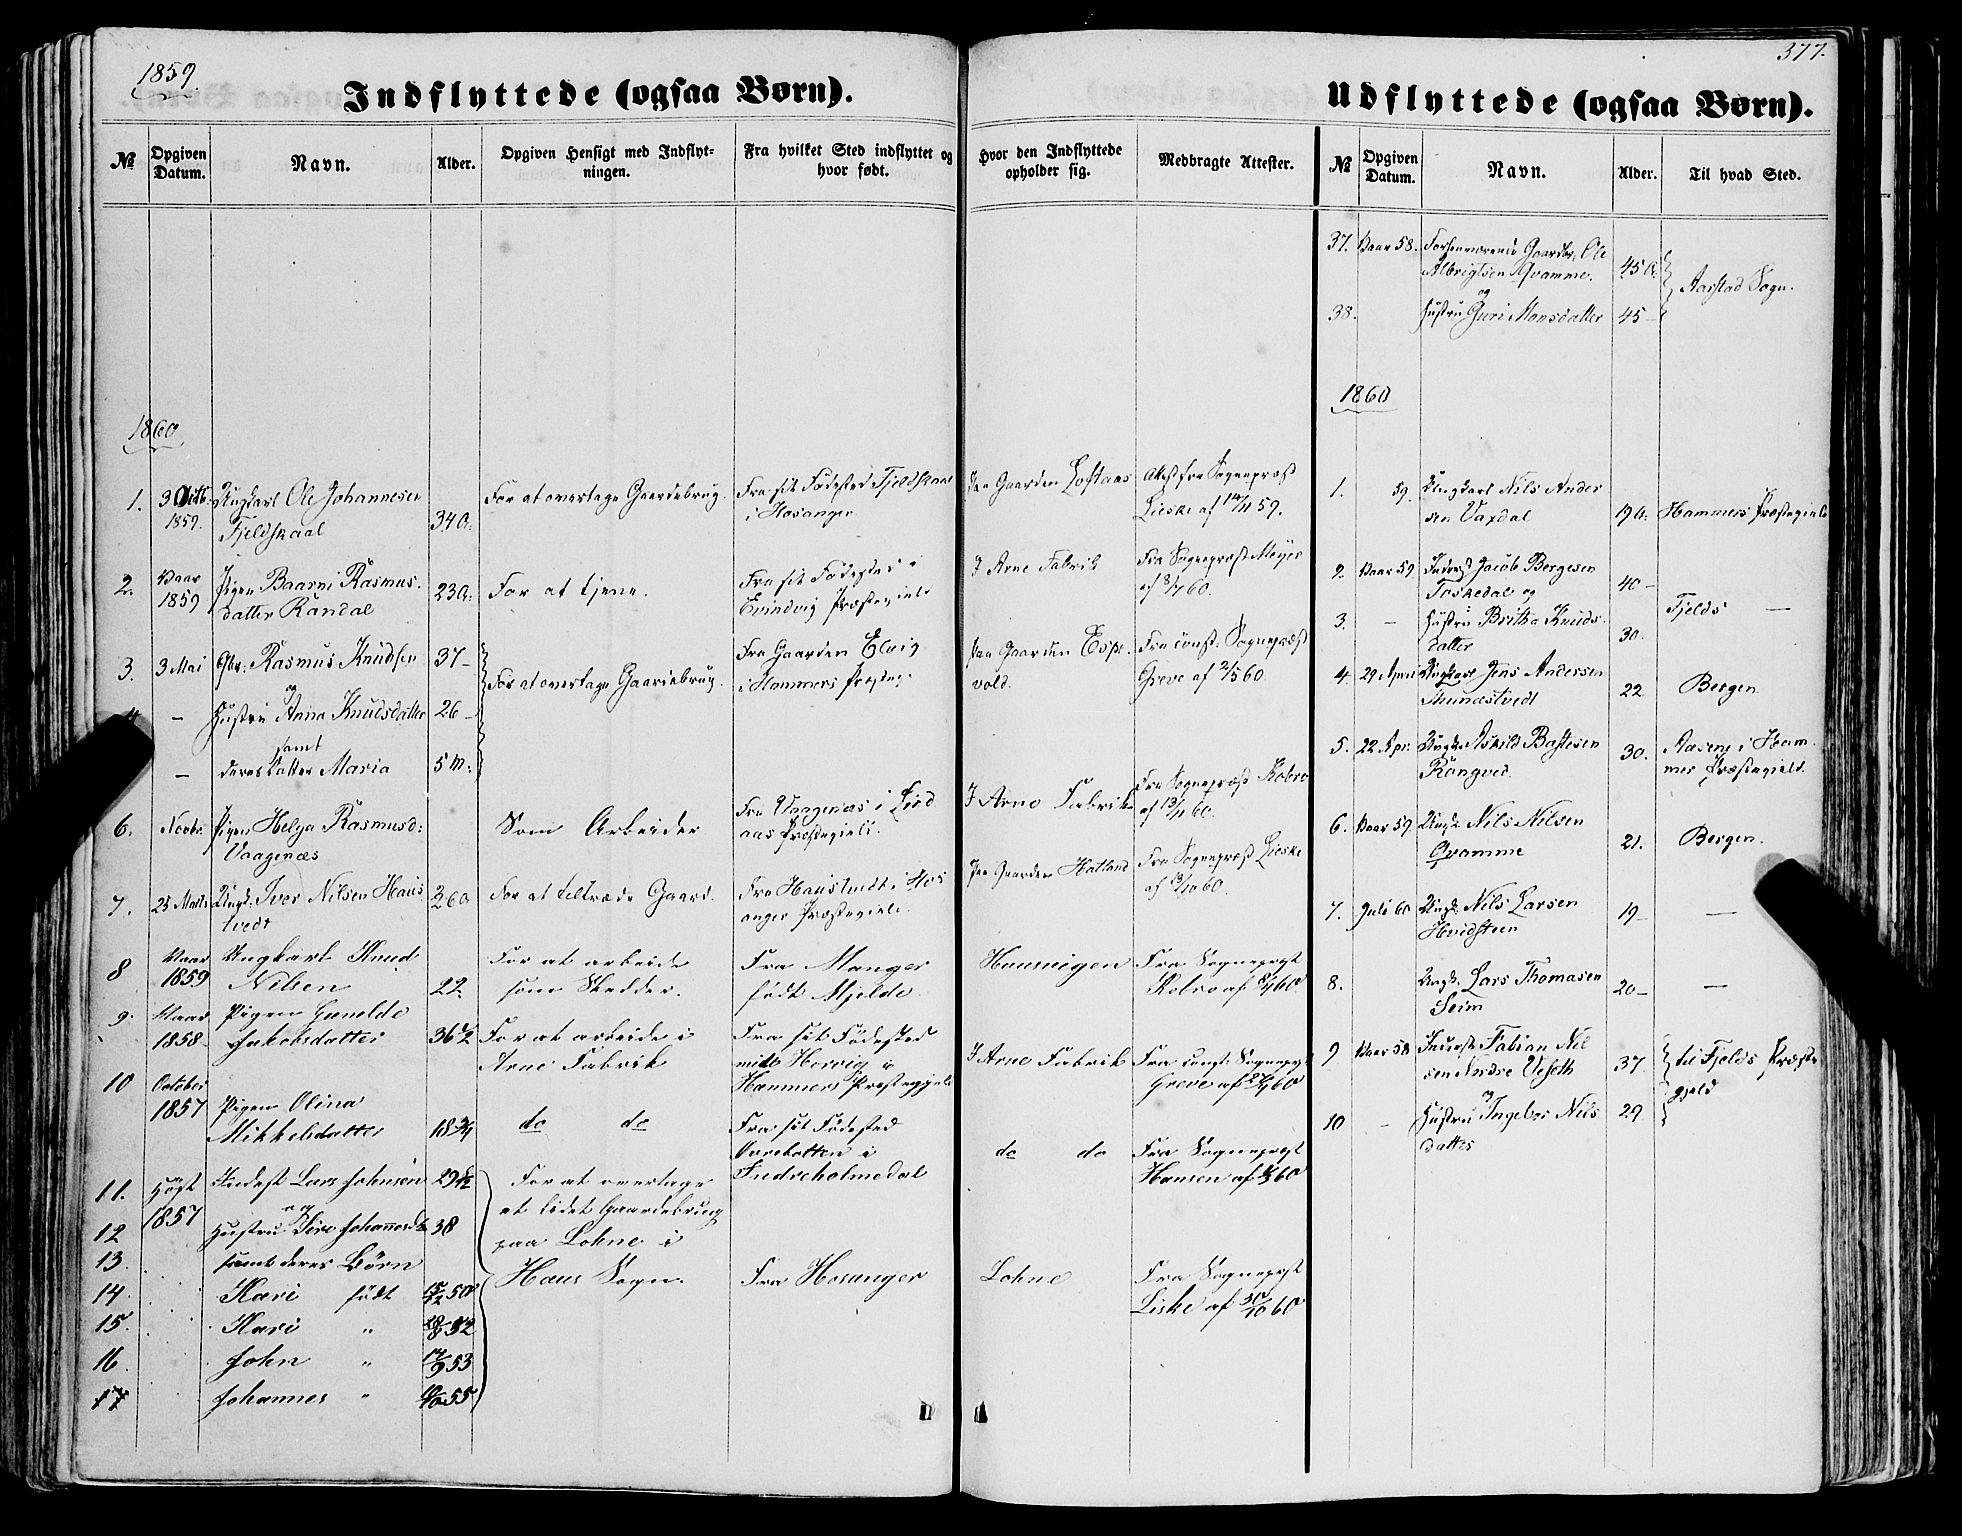 1859.
377.
Indflyttede (ogsaa Børn).
№
Opgiven Datum.
Navn.
Alder.
Opgiven Hensigt med Indflyt-
ningen.
Fra hvilket Sted indflyttet og
hvor født.
Hvor den Indflyttede
opholder sig.
Medbragte Attester.
1860
1. 3 1859. Ungkarl Ole Johannesen
Fjeldskaal 34 a.
For at overtage Gaardebrug.
Fra sit Fødested Fjeldskaal
i Hosanger
Paa Gaarden Loftaas
Attest fra Sognepræst
Lieske af 14/11 59.
2. Vaar 1859 Pigen Baarni Rasmus-
datter Randal 23 a.
For at tjene.
Fra sit Fødested i
Evindvig Præstegield
I Arne Fabrik
Fra Sognepræst Meyer
af 8/7 60.
3. 3 Mai Gbr. Rasmus Knudsen 37 -
og
4 - Hustru Anna Knudsdatter 26 -
samt
- deres Datter Maria 5 M:
For at overtage Gaardebrug.
Fra Gaarden Elvig
i Hammers Præsteg.
Paa Gaarden Espe-
vold.
Fra const. Sognepræst
Greve af 2/5 60.
6. Novbr. Pigen Helga Rasmusd:
Vaagenæs
Som Arbeider
Fra Vaagenæs i Lind
aas Præstegield.
I Arne Fabrik
Fra Sognepræst Kobro
af 13/11 60.
7. 23 Marts Ungk. Iver Nilsen Haus
tvedt 26 a
For at tiltræde Gaard.
Fra Haustvedt i Hos
anger Præstegield.
Paa Gaarden Hatland
Fra Sognepræst Lieske
af 3/10 60.
8 Vaar 1859 Ungkarl Knud
Nilsen 22.
For at arbeide
som Skedder.
Fra Manger
født Mjelde
Hausvigen
Fra Sognepræst
Kobro af 60
9. Vaar 1858 Pigen Gunelde
Jakobsdatter 36 1/2
For at arbeide i
Arne Fabrik
Fra sit Fødested
Hervig i
Hammers Præstegjeld
I Arne Fabrik
Fra const. Sognepræst
Greve af 60
10 October 1857 Pigen Olina
Mikkelsdatter 18 3/4
do do
Fra sit Fødested
i
Indreholmedal
do do
Fra Sognepræst
Hansen af 60
11. Høst 1857 Inderst Lars Johnsen 29
og
12 Hustru Siri Johannesd. 38
13. samt deres Børn
14. Kari født 50
15. Kari " 52
16 John " 53
17 Johannes " 55
For at overtage
et lidet Gaardebrug
paa Lohne i
Haus Sogn.
Fra Hosanger
Lohne
Fra Sognepræst
Liske af 30/10 60
Udflyttede (ogsaa Børn).
№
Opgiven Datum.
Navn.
Alder.
Til hvad Sted.
37. Vaar 58. Forhenværende Gaardbr. Ole
Albrigtsen Qvamme. 45 a.
og
38. Hustru Guri Monsdatter 45 -
Aarstad Sogn.
1860
1. 59. Ungkarl Nils Ander
sen Vaxdal 19 a. Hammers Præstegield
2. Vaar 59. Inderst Jacob Bergesen
Toskedal og 40 -
3. - Hustru Britha Knuds-
datter 30.
Fjelds -
4. 29 April Ungkarl Jens Andersen
Thunæstvedt 22 Bergen.
5. 22 Apr. Ungk. Askild Bastesen
Rongved. 30. Aasene i Ham-
mer Præstegield.
6. Vaar 59. Ungk. Nils Nilsen
Qvamme 21. Bergen.
7. Juli 60 Ungk. Nils Larsen
Hvidsteen 19 - -
8. Ungk. Lars Thomasen
Seim 20 - -
9 Vaar 58 Inderst Fabian Nil
sen Indre 37.
og
10 - Hustru Ingebor Nils
datter 29
til Fjelds Præste
gjeld